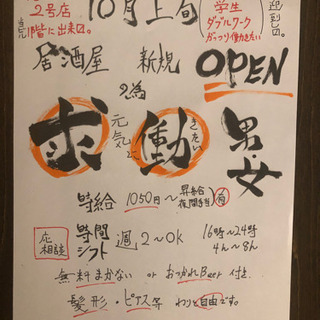 2号店
1階に出来るよ。
10月上旬
学生
ダブルワーク
ガッツリ働きたい
居酒屋 新規 OPEN
の為
求 元気に 働 きたい 男・女
時給 1050円〜 昇給 夜間手当 有
応相談
時間 シフト 週2〜OK 16時〜24時
4h〜8h
無料まかない or おつかれBeer 付き
髪形・ピアス等 わりと自由です。